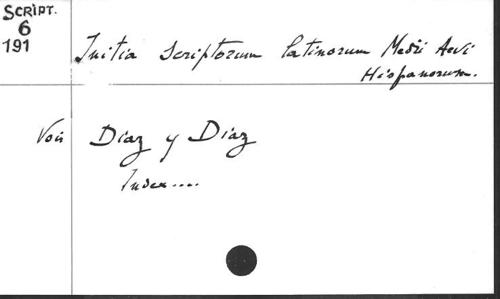 SCRIPT.
6
191
Initia Scriptorum latinorum Medii Aevi
Hispanorum.
Voir Diaz y Diaz
Index....